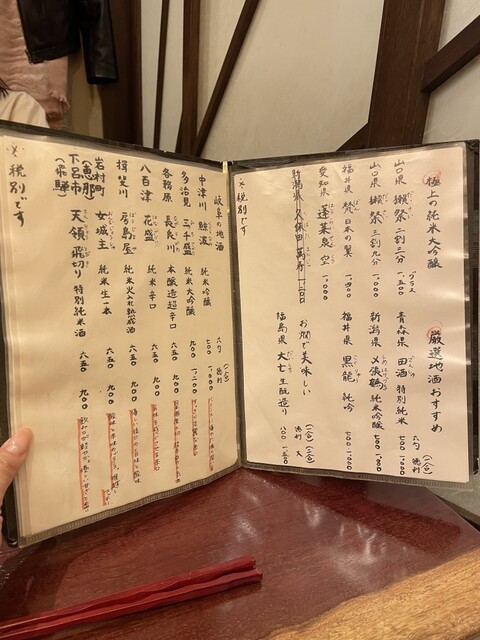 極上の純米大吟醸
グラス
山口県 獺祭 二割三分 一、五〇〇
山口県 獺祭 三割九分 一、〇〇〇
福井県 梵 日本の翼 一、四〇〇
愛知県 蓬莱泉 空 一、〇〇〇
新潟県 久保田 萬寿 一二〇〇
※税別です
厳選地酒おすすめ
六勺 徳利(一合)
青森県 田酒 特別純米 七〇〇 一、〇〇〇
新潟県 〆張鶴 純米吟醸 七〇〇 一、〇〇〇
福井県 黒龍 純吟 七〇〇 一、〇〇〇
お燗で美味しい
徳利(一合) 大(二合)
福島県 大七 生酛造り 八〇〇 一五〇〇
岐阜の地酒
六勺 徳利(一合)
中津川 鯨波 純米吟醸 七〇〇 一、〇〇〇
多治見 三千盛 純米大吟醸 九〇〇 一、二〇〇
各務原 長良川 本醸造超辛口 六五〇 九〇〇
八百津 花盛 純米辛口 六五〇 九〇〇
揖斐川 房島屋 純米火入れ熟成酒 六五〇 九〇〇
岩村町(恵那) 女城主 純米生一本 六五〇 九〇〇
下呂市(飛騨) 天領 飛切り 特別純米酒 六五〇 九〇〇
※税別です